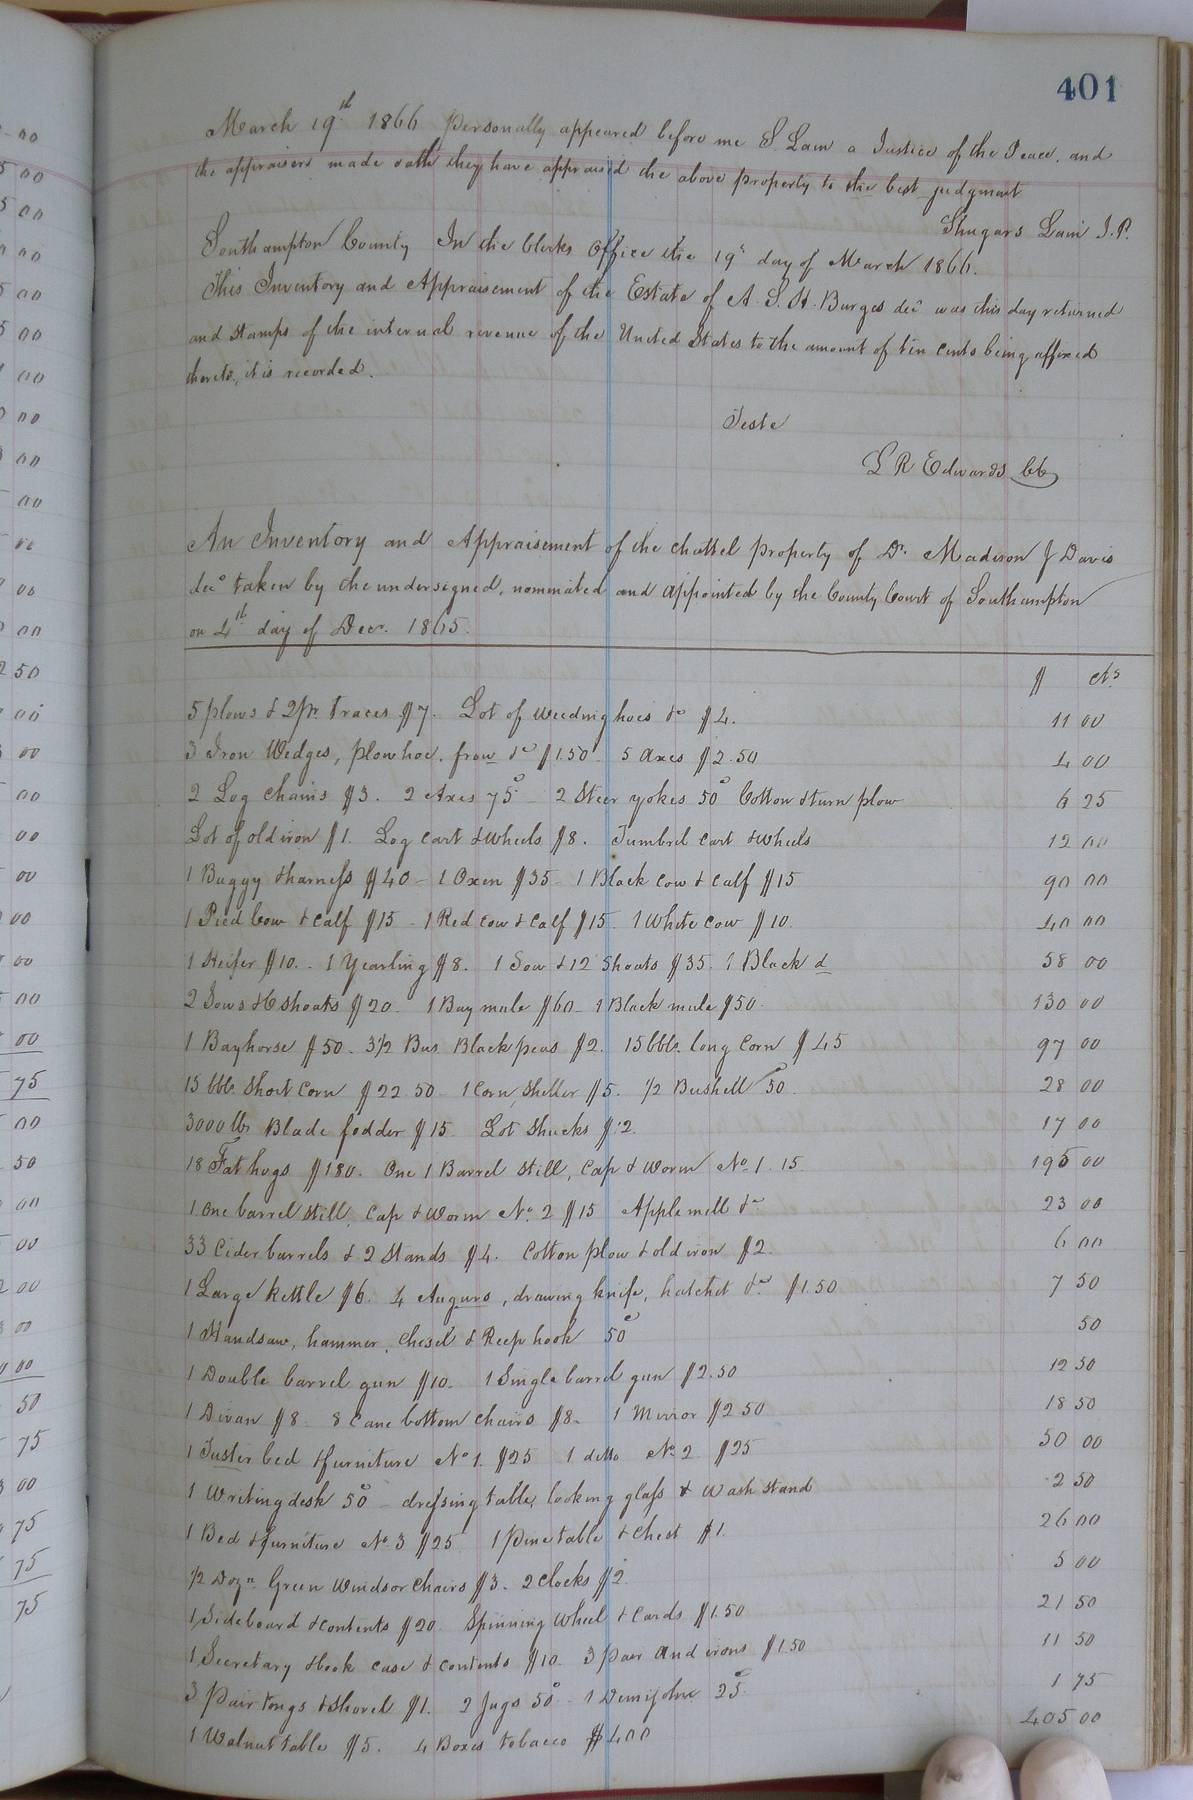 401
March 19th 1866 Personally appeared before me S. Lain a Justice of the Peace, and
the appraisers made oath they have appraised the above property to the best judgment
Shugars Lain J.P.
Southampton County In the Clerks Office the 19th day of March 1866.
This Inventory and Appraisement of the Estate of A. S. H. Burges decd was this day returned
and Stamps of the internal revenue of the United States to the amount of ten cents being affixed
thereto, it is recorded.
Teste
L R Edwards CC
An Inventory and Appraisement of the chattel property of Dr. Madison J Davis
decd taken by the undersigned, nominated and appointed by the County Court of Southampton
on 4th day of Decr. 1865.
$ cts
5 plows & 2 pr. traces $7. Lot of weeding hoes &c $4. 11 00
3 Iron Wedges, plow hoe, frow &c $1.50 5 Axes $2.50 4 00
2 Log Chains $3. 2 Axes 75c 2 Steer yokes 50c Cotton & turn plow 6 25
Lot of old iron $1. Log cart & wheels $8. Tumbrel cart & wheels 12 00
1 Buggy & harness $40 - 1 Oxen $35 - 1 Black cow & calf $15 90 00
1 Pied Cow & calf $15 - 1 Red cow & calf $15. 1 White cow $10. 40 00
1 Heifer $10. - 1 Yearling $8. 1 Sow & 12 Shoats $35. 1 Black d 58 00
2 Sows & 6 shoats $20. 1 Bay mule $60 - 1 Black mule $50. 130 00
1 Bay horse $50 - 3 1/2 Bus. Black peas $2. 15 bbls. long Corn $45 97 00
15 bbls. Short Corn $22 50 1 Corn Sheller $5. 1/2 Bushell 50c 28 00
3000 lbs Blade fodder $15 Lot Shucks $2. 17 00
18 Fat hogs $180. One 1 Barrel Still, Cap & Worm No. 1. 15 195 00
1 One barrel still, Cap & Worm No. 2 $15 Apple mill &c 23 00
33 Cider barrels & 2 Stands $4. Cotton plow & old iron $2. 6 00
1 Large kettle $6. 4 Augurs, drawing knife, hatchet &c $1.50 7 50
1 Handsaw, hammer, Chisel & Reep hook 50c 50
1 Double barrel gun $10. 1 Single barrel gun $2.50 12 50
1 Divan $8 8 Cane bottom chairs $8. 1 Mirror $2 50 18 50
1 Tester bed & furniture No 1. $25 1 ditto No 2 $25 50 00
1 Writing desk 50c dressing table, looking glass & Wash stand 2 50
1 Bed & furniture No. 3 $25 1 Pine table & Chest $1. 26 00
1/2 Dozn Green Windsor Chairs $3. 2 Clocks $2. 5 00
1 Sideboard & contents $20 Spinning Wheel & Cards $1.50 21 50
1 Secretary & book case & contents $10 3 Pair And irons $1.50 11 50
3 Pair tongs & shovel $1. 2 Jugs 50c 1 Demijohn 25c 1 75
1 Walnut table $5. 4 Boxes tobacco $400 405 00